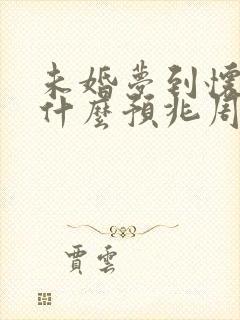 未婚夢到懷
什麼預兆周
賈雲